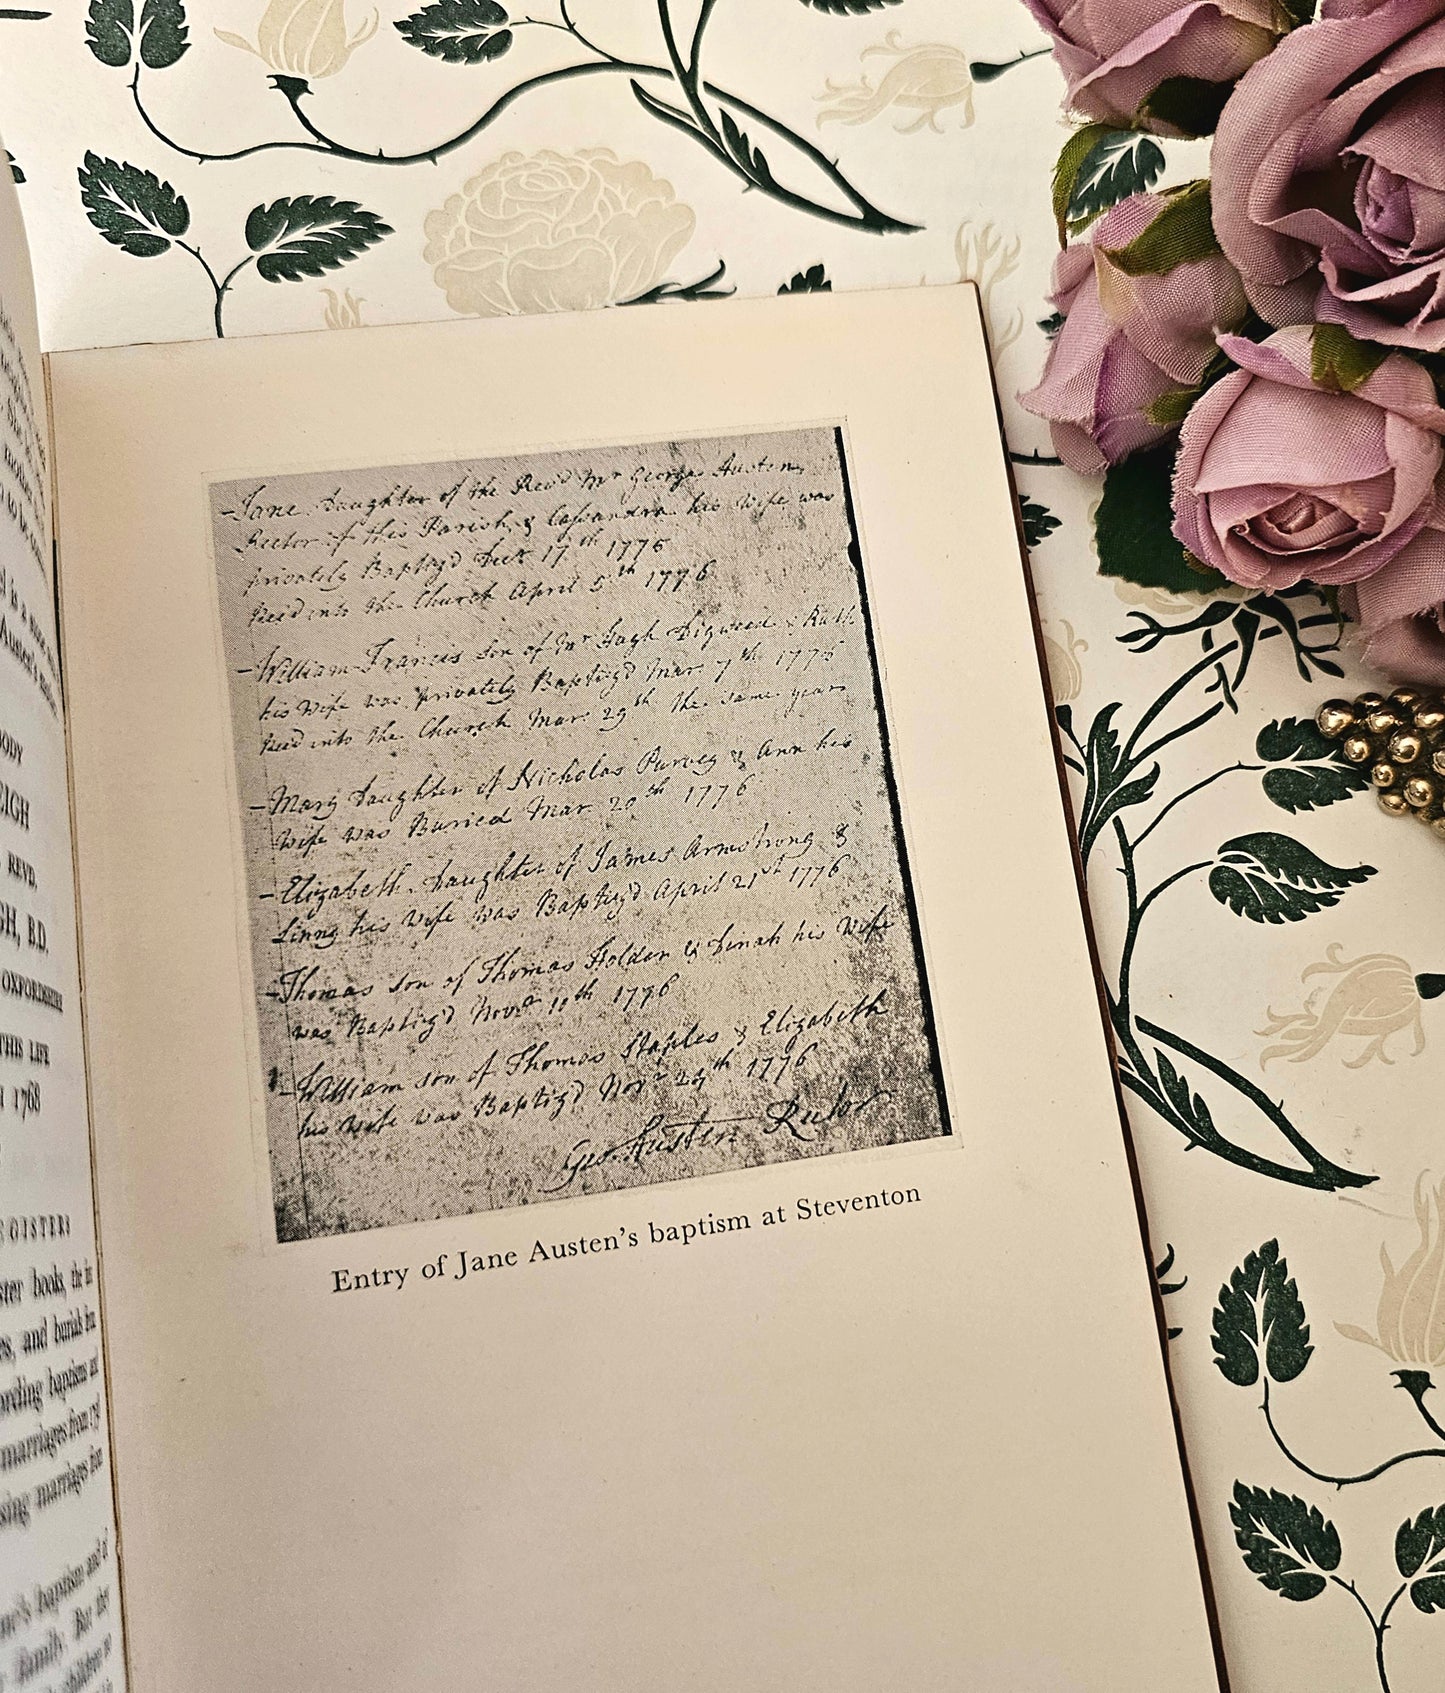 BODY
EIGH
REVD.
GH, B.D.
OXFORDSHIRE
THIS LIFE
1768
ster books, the
es, and burials
ording baptisms
marriages from
sing marriages
baptism and
family. But
-Jane Daughter of the Revd Mr George Austen,
Rector of this Parish, & Cassandra his Wife was
privately Baptiz'd Decr 17th 1775
Rec'd into the Church April 5th 1776
-William-Francis Son of Mr Hugh Digweed & Ruth
his Wife was privately Baptiz'd Mar. 7th 1776
Rec'd into the Church Mar: 29th the same year
-Mary Daughter of Nicholas Purvey & Ann his
Wife was Buried Mar. 20th 1776
-Elizabeth Daughter of James Armstrong &
his Wife was Baptiz'd April 21st 1776
-Thomas Son of Thomas Holder & Dinah his Wife
was Baptiz'd Novr 10th 1776
-William son of Thomas Staples & Elizabeth
his Wife was Baptiz'd Novr 24th 1776
Geo: Austen Rector
Entry of Jane Austen's baptism at Steventon